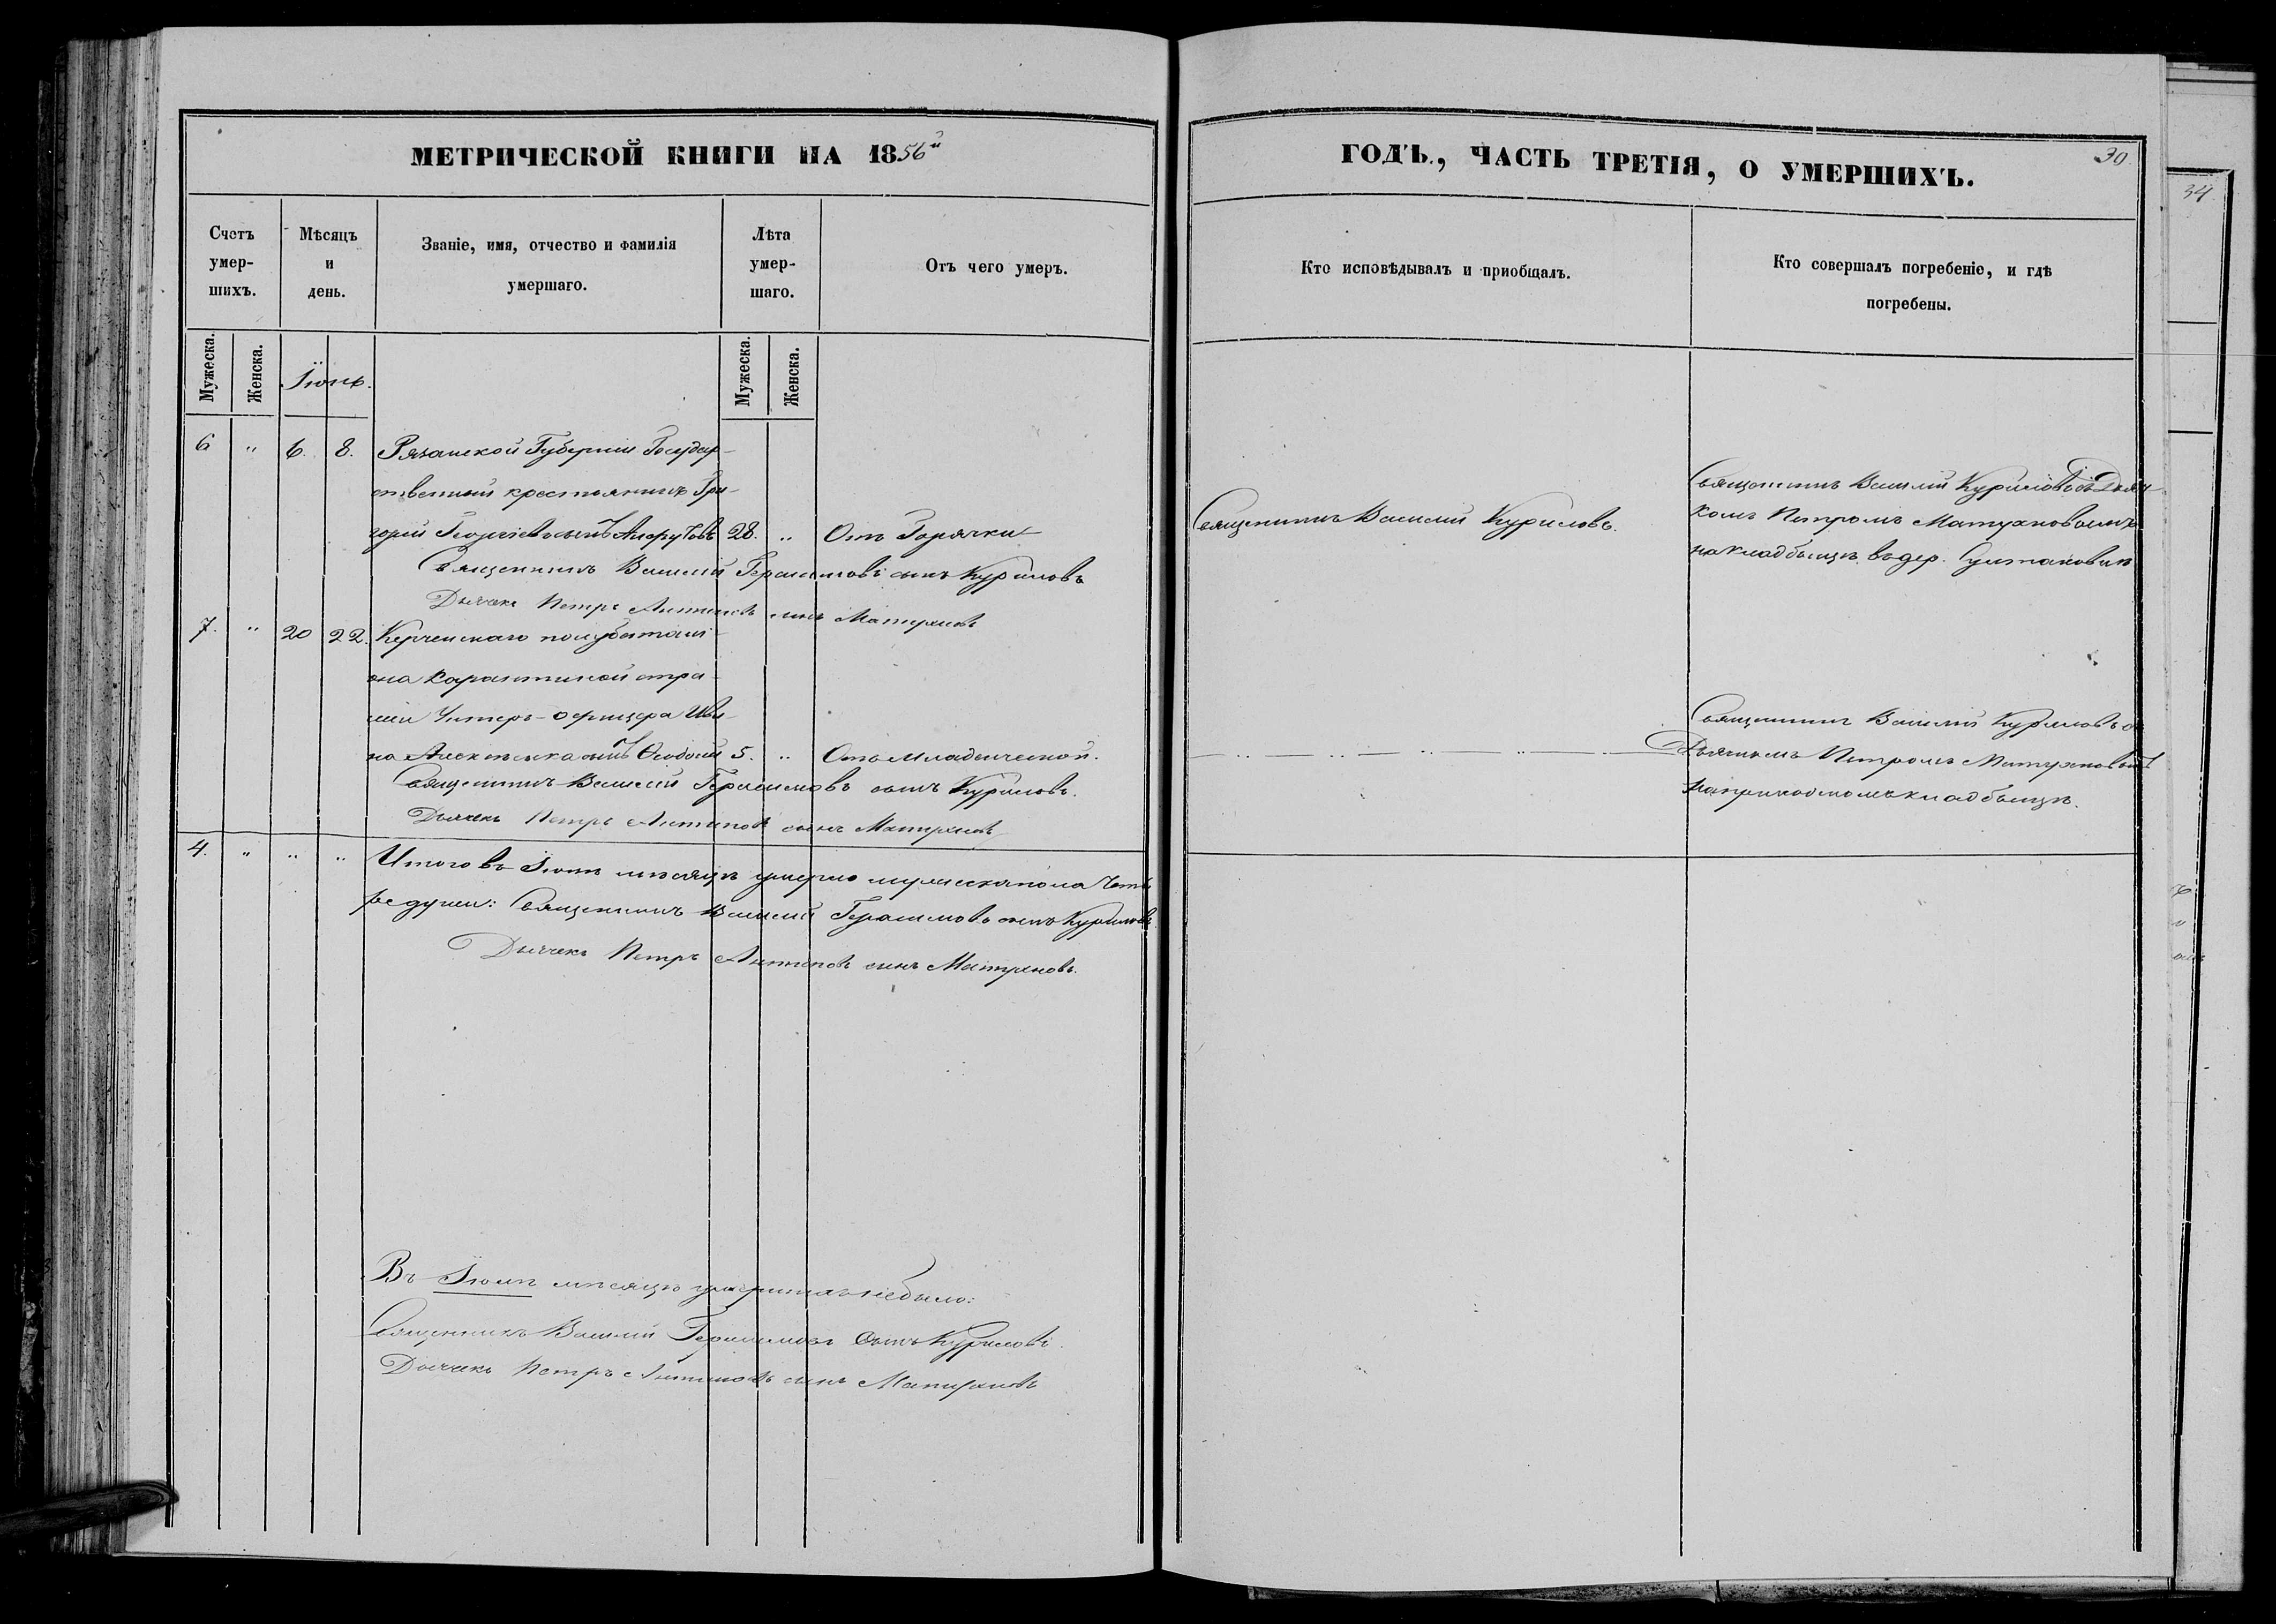 МЕТРИЧЕСКОЙ КНИГИ НА 1856й
ГОДЪ., ЧАСТЬ ТРЕТІЯ, О УМЕРШИХЪ.
30.
34.
Счетъ умер- шихъ.
Мѣсяцъ и день.
Званіе, имя, отчество и фамилія умершаго.
Лѣта умер- шаго.
Отъ чего умеръ.
Кто исповѣдывалъ и приобщалъ.
Кто совершалъ погребеніе, и гдѣ погребены.
Мужеска. Женска.
Іюнь.
Мужеска. Женска.
6 " 6. 8. Рязанской Губерніи Государ-
ственный крестьянинъ Гри-
горій Георгіевъ сынъ 28. " Отъ Горячки
Священникъ Василій Герасимовъ сынъ Куриловъ
Дьячекъ Петръ Антиповъ сынъ Матухновъ
Священникъ Василій Куриловъ.
Священникъ Василій Куриловъ съ Дьяч-
комъ Петромъ Матухновымъ
на кладбищѣ въ дер. Султановкѣ
7. " 20 22. Керченскаго полубаталі-
она Карантинной стра-
жи Унтеръ-офицера Ива-
на сынъ Ѳеодосій 5. " Отъ младенческой.
Священникъ Василій Герасимовъ сынъ Куриловъ.
Дьячекъ Петръ Антиповъ сынъ Матухновъ
Священникъ Василій Куриловъ съ
Дьячкомъ Петромъ Матухновымъ
на приходскомъ кладбищѣ.
4. " " " Итого въ Іюнѣ мѣсяцѣ умерло мужеска пола Четы
ре души: Священникъ Василій Герасимовъ сынъ Куриловъ
Дьячекъ Петръ Антиповъ сынъ Матухновъ.
Въ Іюлѣ мѣсяцѣ умершихъ небыло:
Священникъ Василій Герасимовъ Сынъ Куриловъ.
Дьячекъ Петръ Антиповъ сынъ Матухновъ